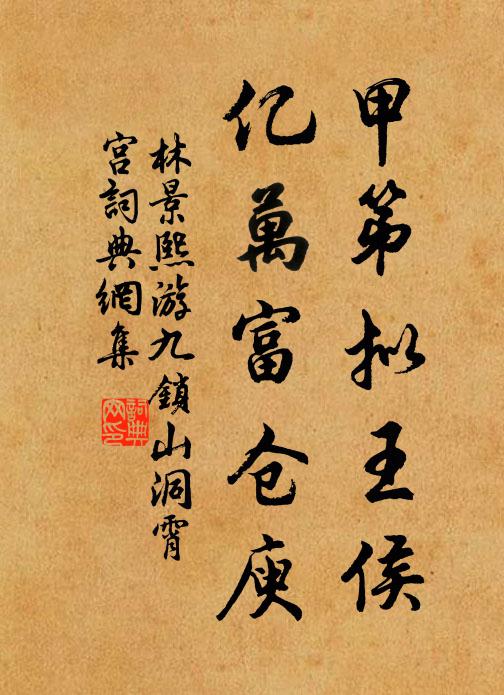 甲第拟王侯
亿萬富仓庾
林景熙游九鎖山洞霄
宫詞典網集
詞典網印